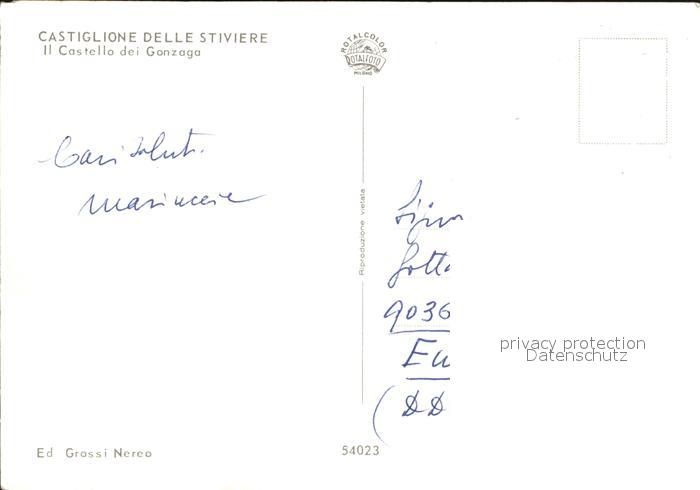 CASTIGLIONE DELLE STIVIERE
Il Castello dei Gonzaga
ROTALCOLOR
ROTALFOTO
MILANO
Cari Saluti
Riproduzione vietata
9036
Eu
(DD
privacy protection
Datenschutz
Ed Grossi Nereo
54023